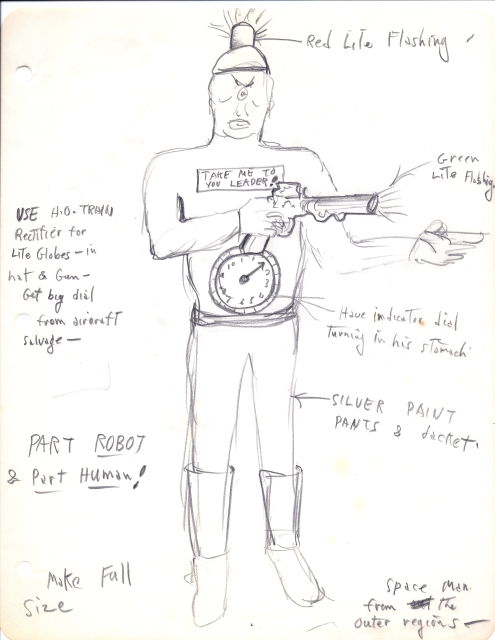 Red Lite Flashing
Green
Lite Flashing
TAKE ME TO
YOU LEADER!
USE H.O. TRAIN
Rectifier for
Lite Globes - in
hat & Gun -
Get big dial
from aircraft
salvage -
Have indicator dial
turning in his stomach
SILVER PAINT
PANTS & Jacket.
PART ROBOT
& Part Human!
Make Full
Size
Space Man
from the
outer regions -